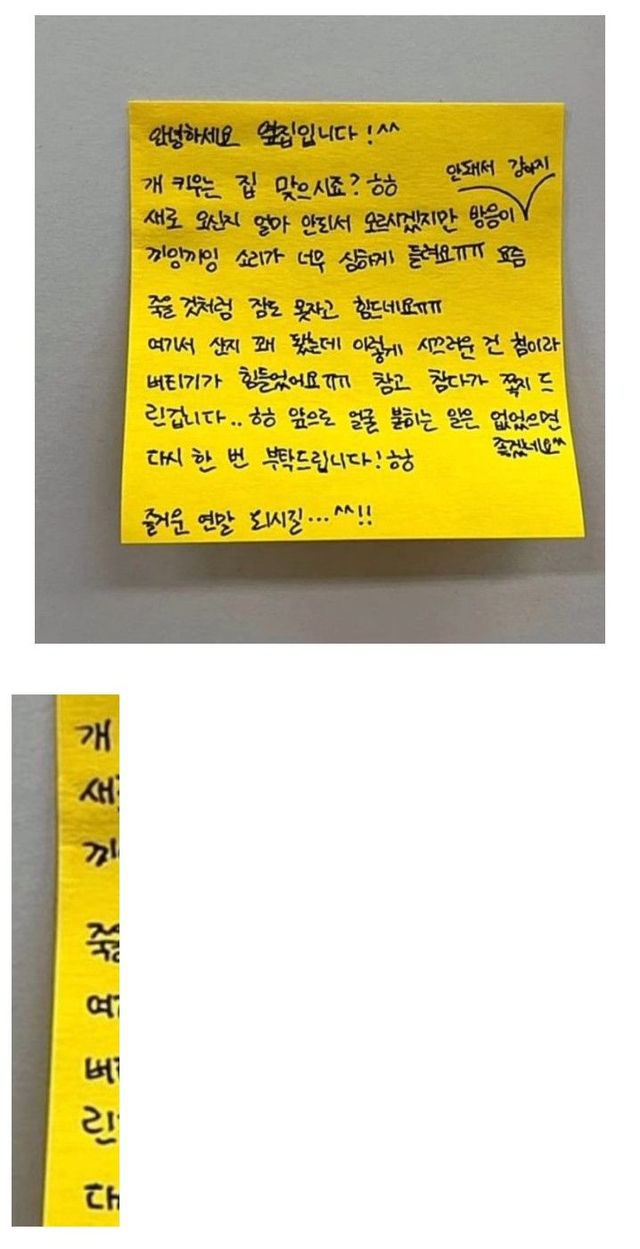 안녕하세요 옆집입니다!^^
개 키우는 집 맞으시죠? ㅎㅎ 안돼서 강아지
새로 오신지 얼마 안되서 모르시겠지만 방음이
끼잉끼잉 소리가 너무 심하게 들려요ㅠㅠ 요즘
죽을 것처럼 잠도 못자고 힘드네요ㅠㅠ
여기서 산지 꽤 됐는데 이렇게 시끄러운 건 첨이라
버티기가 힘들었어요ㅠㅠ 참고 참다가 쪽지 드
린겁니다.. ㅎㅎ 앞으로 얼굴 붉히는 일은 없었으면
좋겠네요^^
다시 한 번 부탁드립니다! ㅎㅎ
즐거운 연말 되시길...^^!!
개
새
끼
죽
여
버
린
다